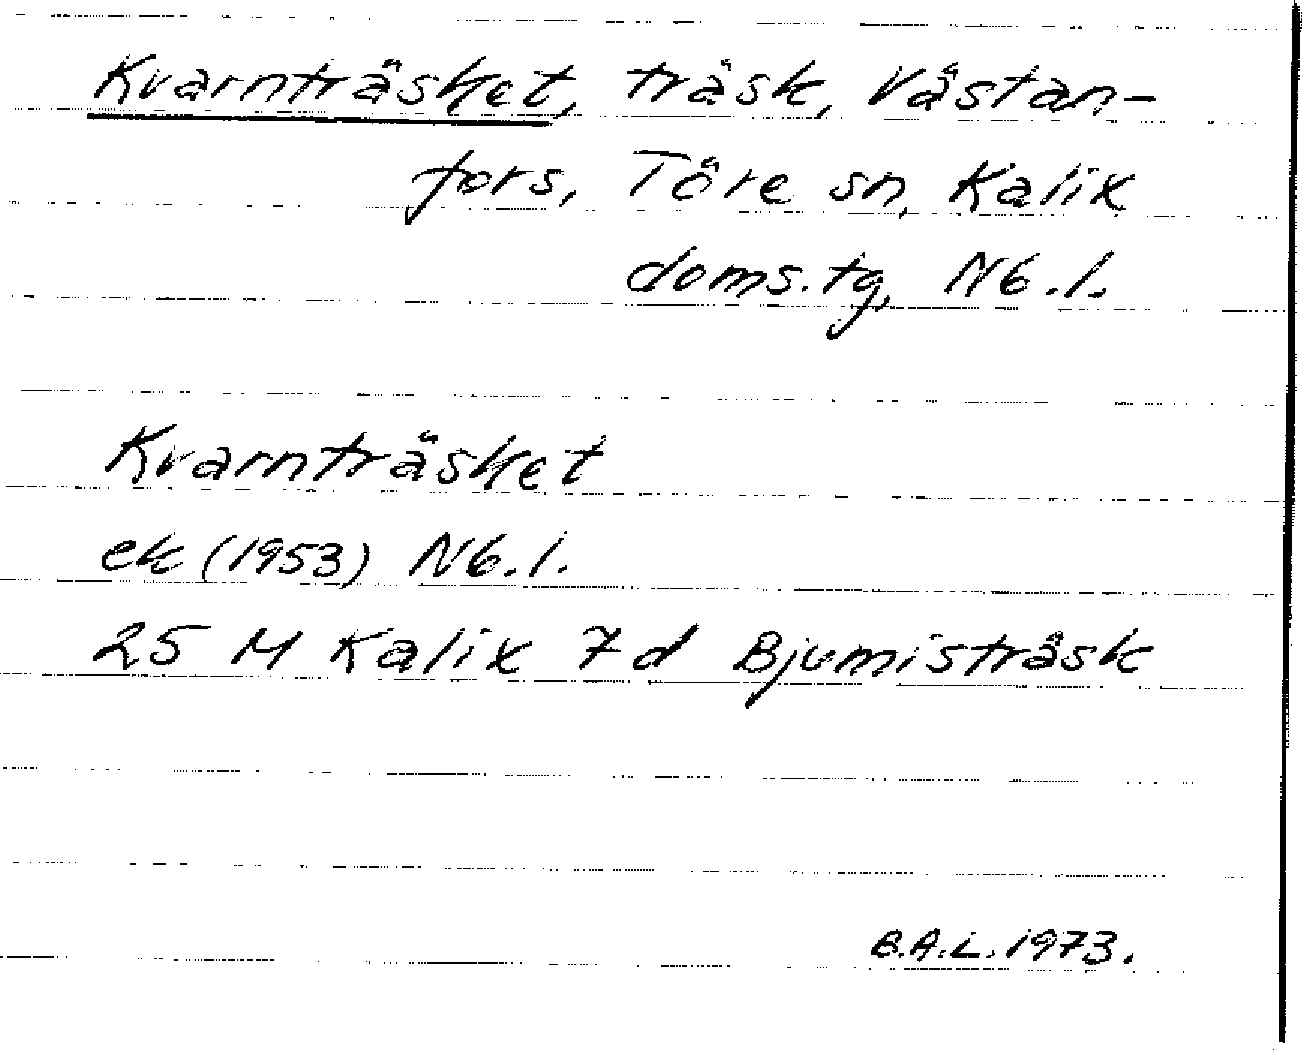 Kvarnträsket, träsk, Västan-
fors, Töre sn, Kalix
doms.tg, Nb.l.
Kvarnträsket
ek (1953) Nb.l.
25 M Kalix 7d Bjumisträsk
B.A.L. 1973.